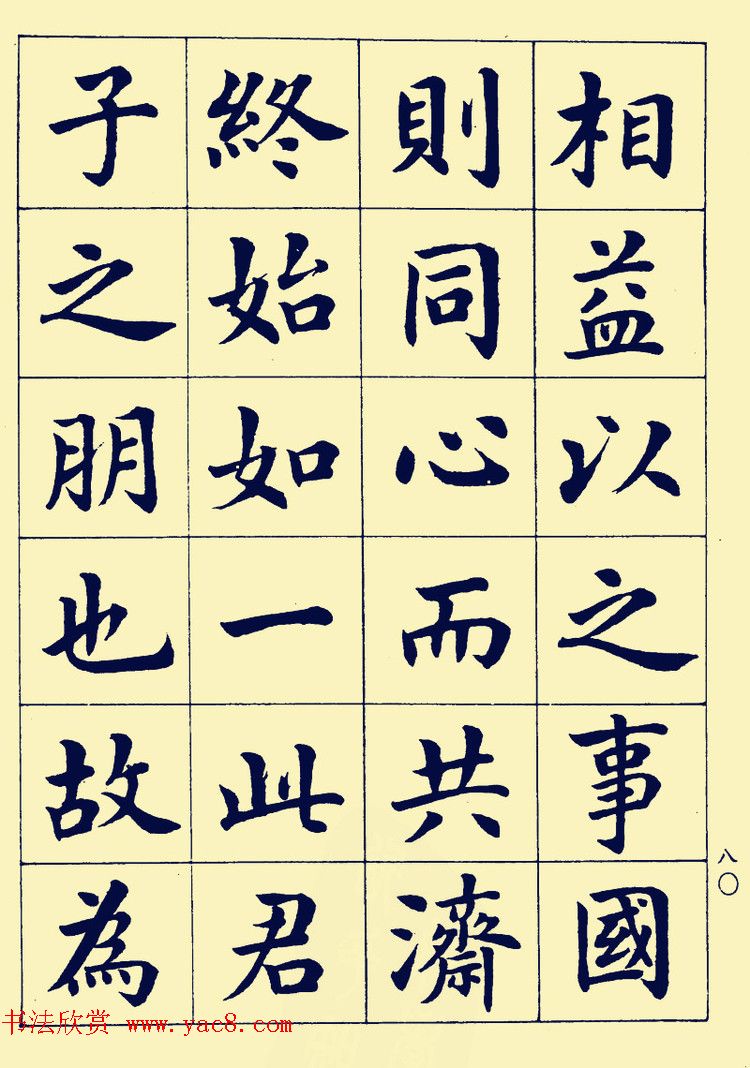 相益以之事國
則同心而共濟
終始如一此君
子之朋也故為
八〇
书法欣赏 www.yac8.com